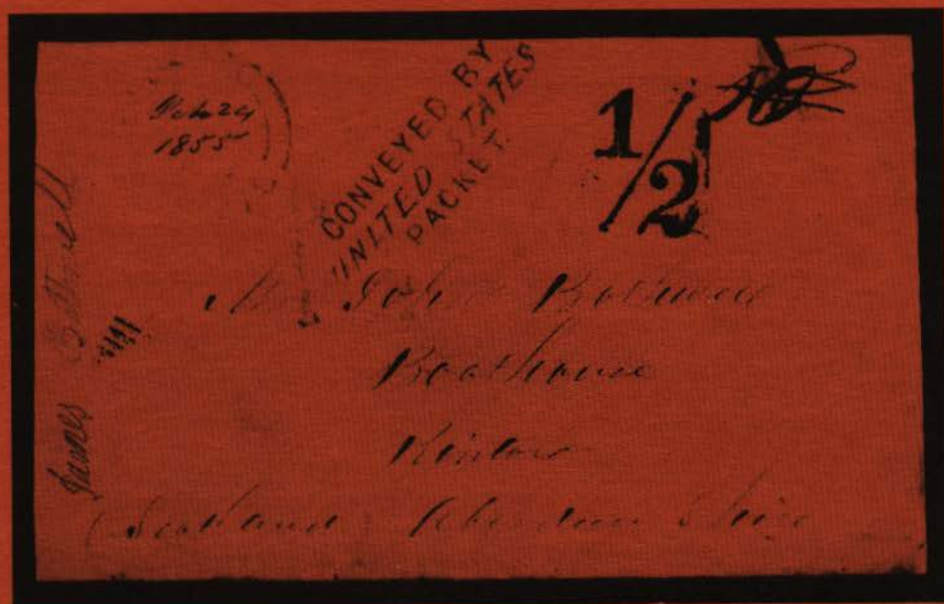 Feb 24
1855
CONVEYED BY
UNITED STATES
PACKET.
1/2
Mr John
Boathouse
Kintore
Scotland Aberdeen Shire
James